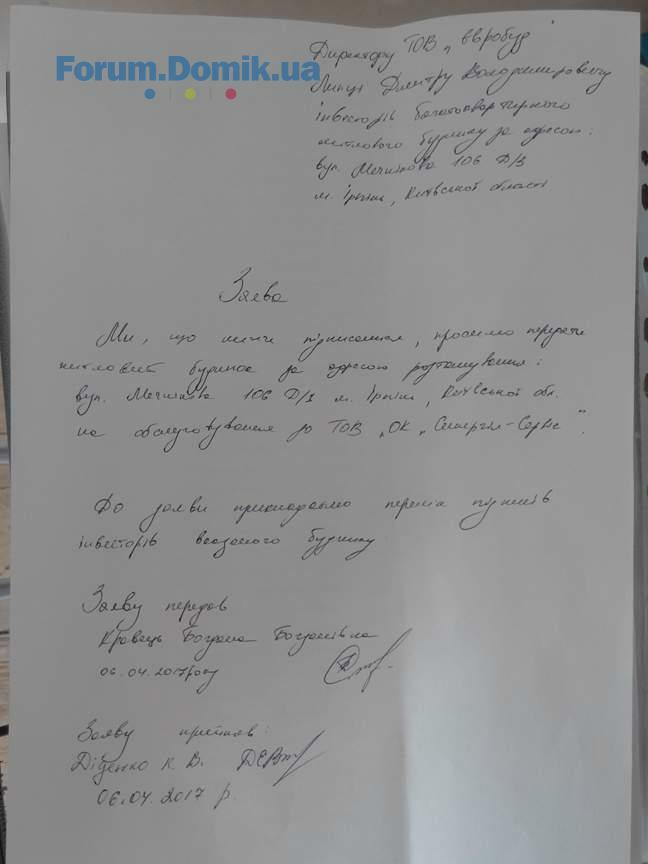 Директору ТОВ „Євробуд"
Forum.Domik.ua
Дмитру Володимировичу
інвесторів багатоквартирного
житлового будинку за адресою:
вул. Мечнікова 106 Д/3
м. Ірпінь, Київської області
Заява
Ми, що нижче підписалися, просимо передати
житловий будинок за адресою розташування:
вул. Мечнікова 106 Д/3 м. Ірпінь, Київської обл.
на обслуговування до ТОВ „ОК „Синергія-Сервіс".
До заяви прикладаємо перелік підписів
інвесторів вказаного будинку
Заяву передав
Кравець Богдана Богданівна
06.04.2017 року
Заяву прийняв:
Діденко К. В.
06.04.2017 р.